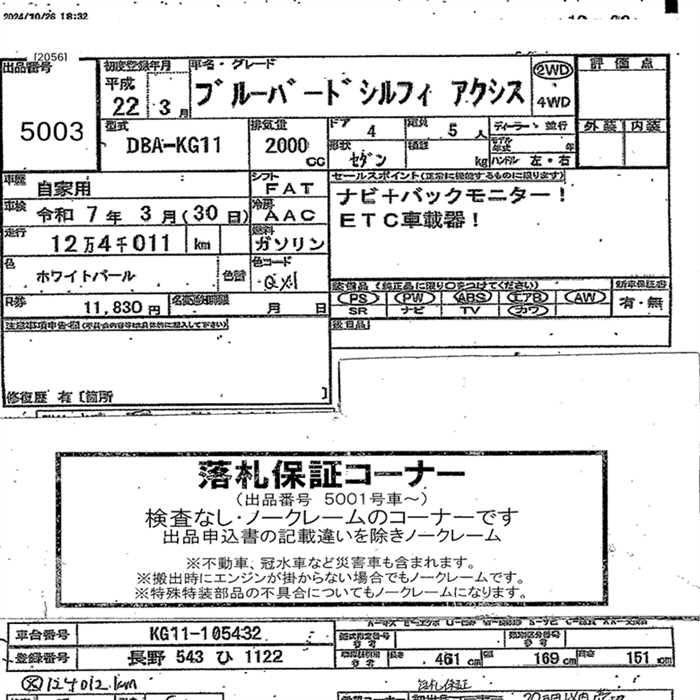 2024/10/26 18:32
[2056]
出品番号 5003
初度登録年月 平成 22 3 月
車名・グレード ブルーバードシルフィ アクシス
2WD
4WD
評価点
外装 内装
型式 DBA-KG11
排気量 2000 CC
ドア 4
定員 5 人
形状 セダン
積載 kg
ディーラー・並行
モデル年式 年
ハンドル 左・右
車歴 自家用
シフト FAT
車検 令和 7 年 3 月 (30 日)
冷房 AAC
走行 12万4千011 km
燃料 ガソリン
色 ホワイトパール
色替
色コード QX1
R券 11,830 円
名変期限 月 日
セールスポイント(正常に機能するものに限ります)
ナビ+バックモニター!
ETC車載器!
装備品(純正品に限り○をつけてください)
PS PW ABS エアB AW
SR ナビ TV カワ
新車保証書
有・無
注意事項申告欄(不具合の内容は具体的に記入して下さい)
修復歴 有〔箇所 〕
落札保証コーナー
(出品番号 5001号車~)
検査なし・ノークレームのコーナーです
出品申込書の記載違いを除きノークレーム
※不動車、冠水車など災害車も含まれます。
※搬出時にエンジンが掛からない場合でもノークレームです。
※特殊特装部品の不具合についてもノークレームになります。
車台番号 KG11-105432
型式指定番号
類別区分番号
登録番号 長野 543 ひ 1122
長さ 461 cm
169 cm
151 cm
124012km
落札保証